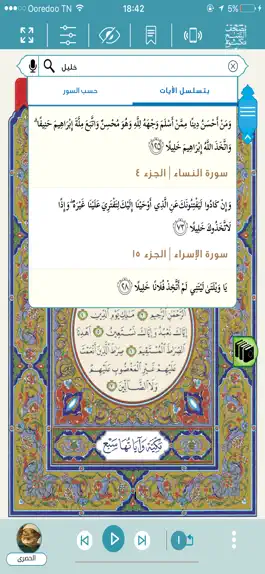 Ooredoo TN
18:42
5%
خليل
بتسلسل الآيات
حسب السور
وَمَنْ أَحْسَنُ دِينًا مِمَّنْ أَسْلَمَ وَجْهَهُ لِلَّهِ وَهُوَ مُحْسِنٌ وَاتَّبَعَ مِلَّةَ إِبْرَاهِيمَ حَنِيفًا ۗ
وَاتَّخَذَ اللَّهُ إِبْرَاهِيمَ خَلِيلًا ﴿١٢٥﴾
سورة النساء | الجزء ٤
وَإِنْ كَادُوا لَيَفْتِنُونَكَ عَنِ الَّذِي أَوْحَيْنَا إِلَيْكَ لِتَفْتَرِيَ عَلَيْنَا غَيْرَهُ ۖ وَإِذًا
لَاتَّخَذُوكَ خَلِيلًا ﴿٧٣﴾
سورة الإسراء | الجزء ١٥
يَا وَيْلَتَىٰ لَيْتَنِي لَمْ أَتَّخِذْ فُلَانًا خَلِيلًا ﴿٢٨﴾
الرَّحْمَٰنِ الرَّحِيمِ مَٰلِكِ يَوْمِ الدِّينِ
إِيَّاكَ نَعْبُدُ وَإِيَّاكَ نَسْتَعِينُ اهْدِنَا
الصِّرَٰطَ الْمُسْتَقِيمَ صِرَٰطَ الَّذِينَ أَنْعَمْتَ
عَلَيْهِمْ غَيْرِ الْمَغْضُوبِ عَلَيْهِمْ
وَلَا الضَّالِّينَ
مَكِّيَّة وَآيَاتُهَا سَبْع
1
الحصري